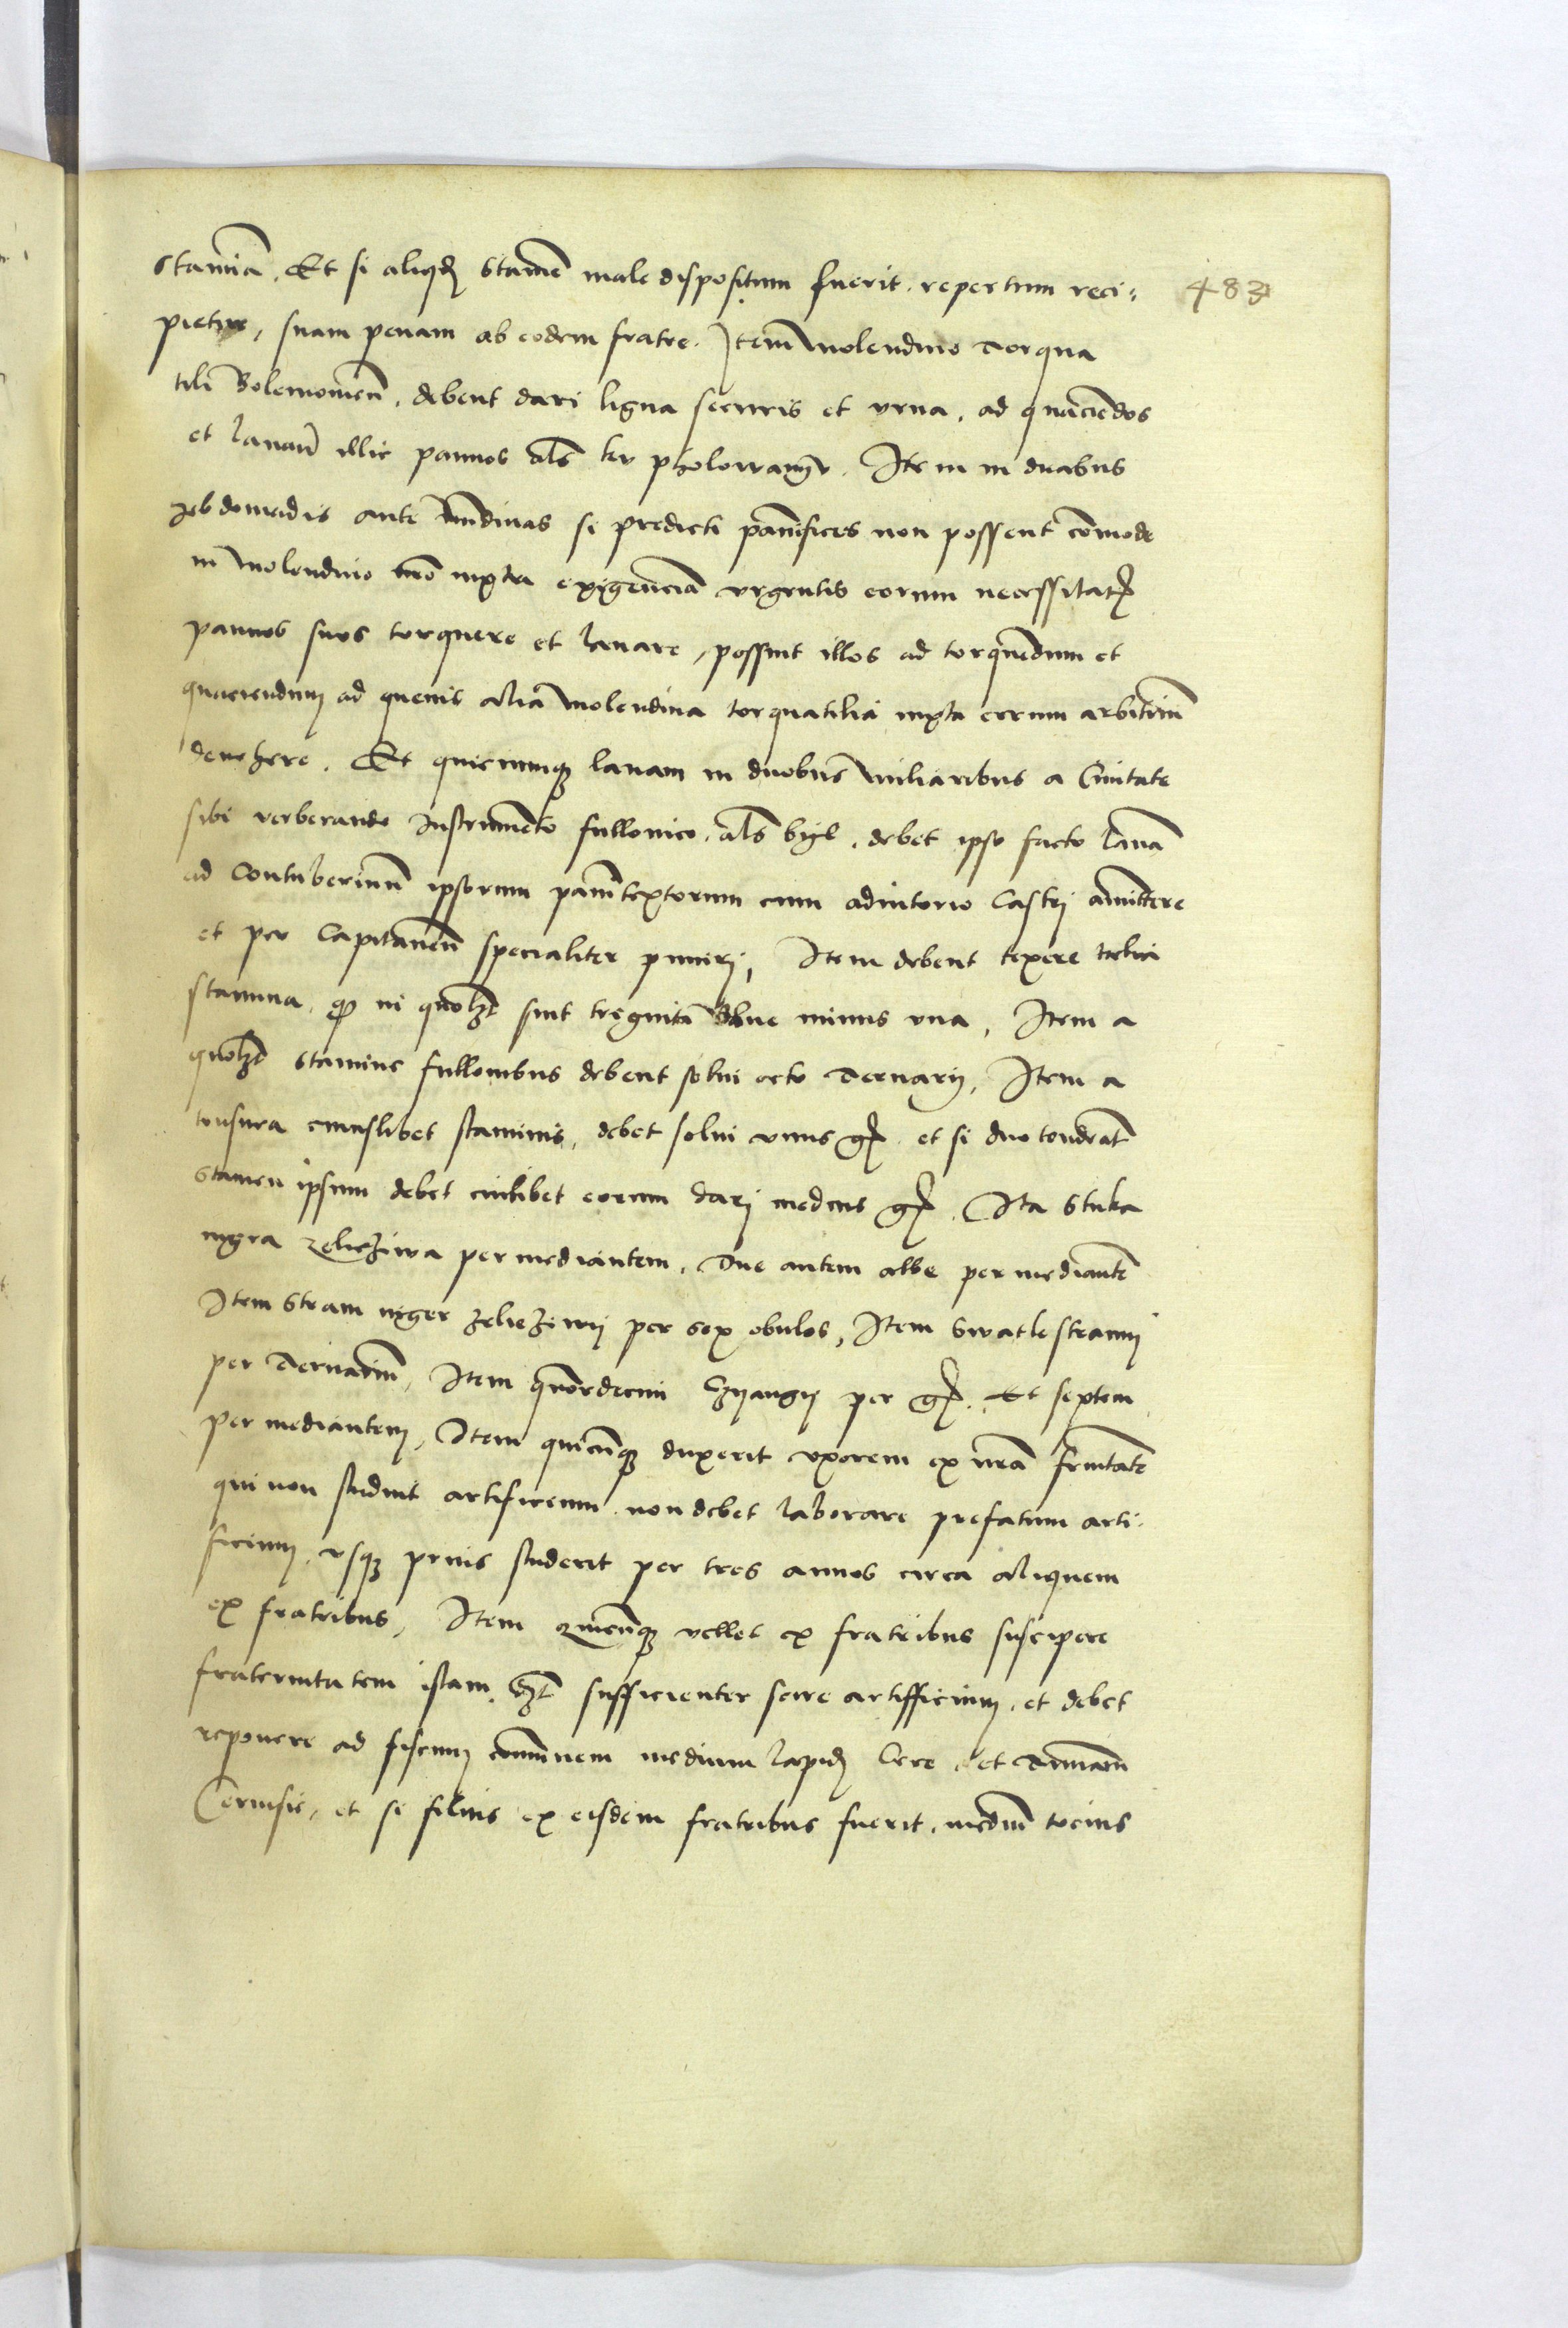 stamĩa. Et si aliqđ stamē male dispositum fuerit. repertum reci= 483
pietur, suam penam ab eodem fratre. Itē molendino Torqua
tili Bolemouieñ. debent dari ligna securis et vrna, ad quaciēdos
et lauañ illic pannos als ku. Item in duabus
hebdomadis ante nūdinas si predicti pānifices non possent cōmode
in molendino nr̃o iuxta exigenciā vrgentis eorum necessitat
pannos suos torquere et lauare, possint illos ad torquēdum et
quaciendum ad queuis alia molendina torquatilia iuxta eorum arbitriū
deuehere. Et quicunq lanam in duobus miliaribus a Ciuitate
sibi verberando Instrumēto fullonico. als byl. debet ipso facto lanā
ad Contuberniū ipsorum pānitextorum cum adiutorio Castri amittere
et per Capitaneū specialiter puniri, Item debent texere
stamina. in quolt sint triginta vlne minus vna, Item a
quolt stamine fullonibus debent solui octo Denarij, Item a
tonsura cuiuslibet staminis, debet solui vnus gr. et si duo tondeāt
stamen ipsum debet cuilibet eorum dari medius gr. Ita Stuka
nigra zelieziwa per mediantem, Due autem albe per mediantē
Item Stram niger zelieziwij per sex obulos, Item Swatlestramij
per Denariū, Item quordecim per gr. Et septem
per mediantem, Item quicūq duxerit vxorem ex nr̃a frñitate
qui non studuit artificium. non debet laborare prefatum arti-
ficium, vsq prius studerit per tres annos circa aliquem
ex fratribus, Item Quicūq vellet ex fratribus suscipere
fraternitatem istam. sufficienter scire artifficium. et debet
reponere ad fiscum cōmunem medium lapid Cere. et
Ceruisie, et si filius ex eisdem fratribus fuerit. mediū tocius